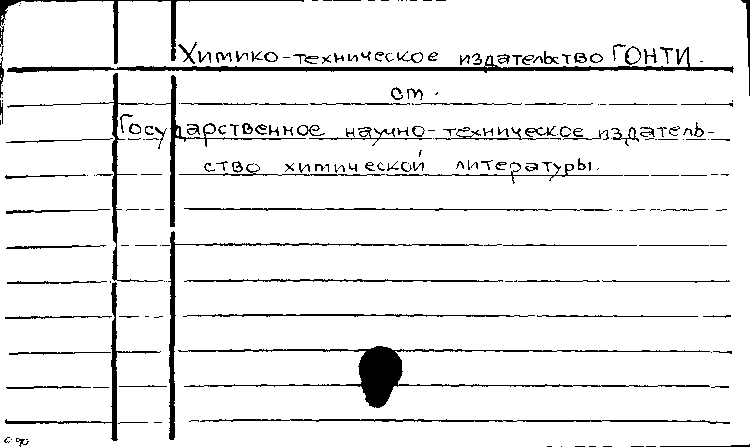 Химико-техническое издательство ГОНТИ.
см.
Государственное научно-техническое издатель-
ство химической литературы.